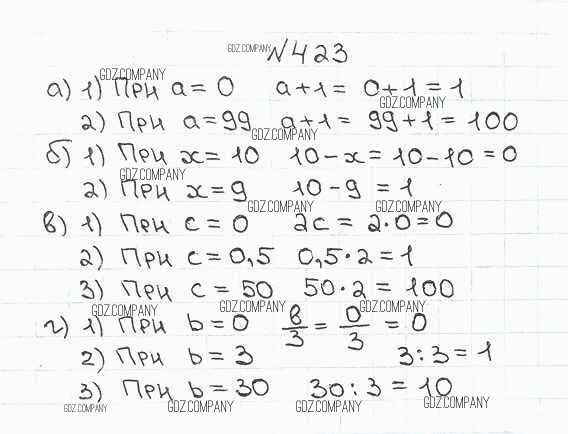 GDZ.COMPANY №423
GDZ.COMPANY
а) 1) При a = 0 a+1 = 0+1 = 1
GDZ.COMPANY
2) При a = 99 a+1 = 99+1 = 100
GDZ.COMPANY
б) 1) При x = 10 10-x = 10-10 = 0
GDZ.COMPANY
2) При x = 9 10-9 = 1
GDZ.COMPANY GDZ.COMPANY
в) 1) При c = 0 2c = 2·0 = 0
2) При c = 0,5 0,5·2 = 1
3) При c = 50 50·2 = 100
GDZ.COMPANY GDZ.COMPANY GDZ.COMPANY
г) 1) При b = 0 в/3 = 0/3 = 0
2) При b = 3 3:3 = 1
3) При b = 30 30:3 = 10
GDZ.COMPANY GDZ.COMPANY GDZ.COMPANY GDZ.COMPANY